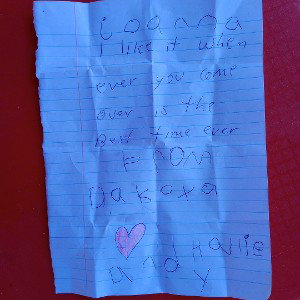 ioanna
I like it when
ever you come
over is the
Best time ever
From
Dakoxa
and Hallie
y